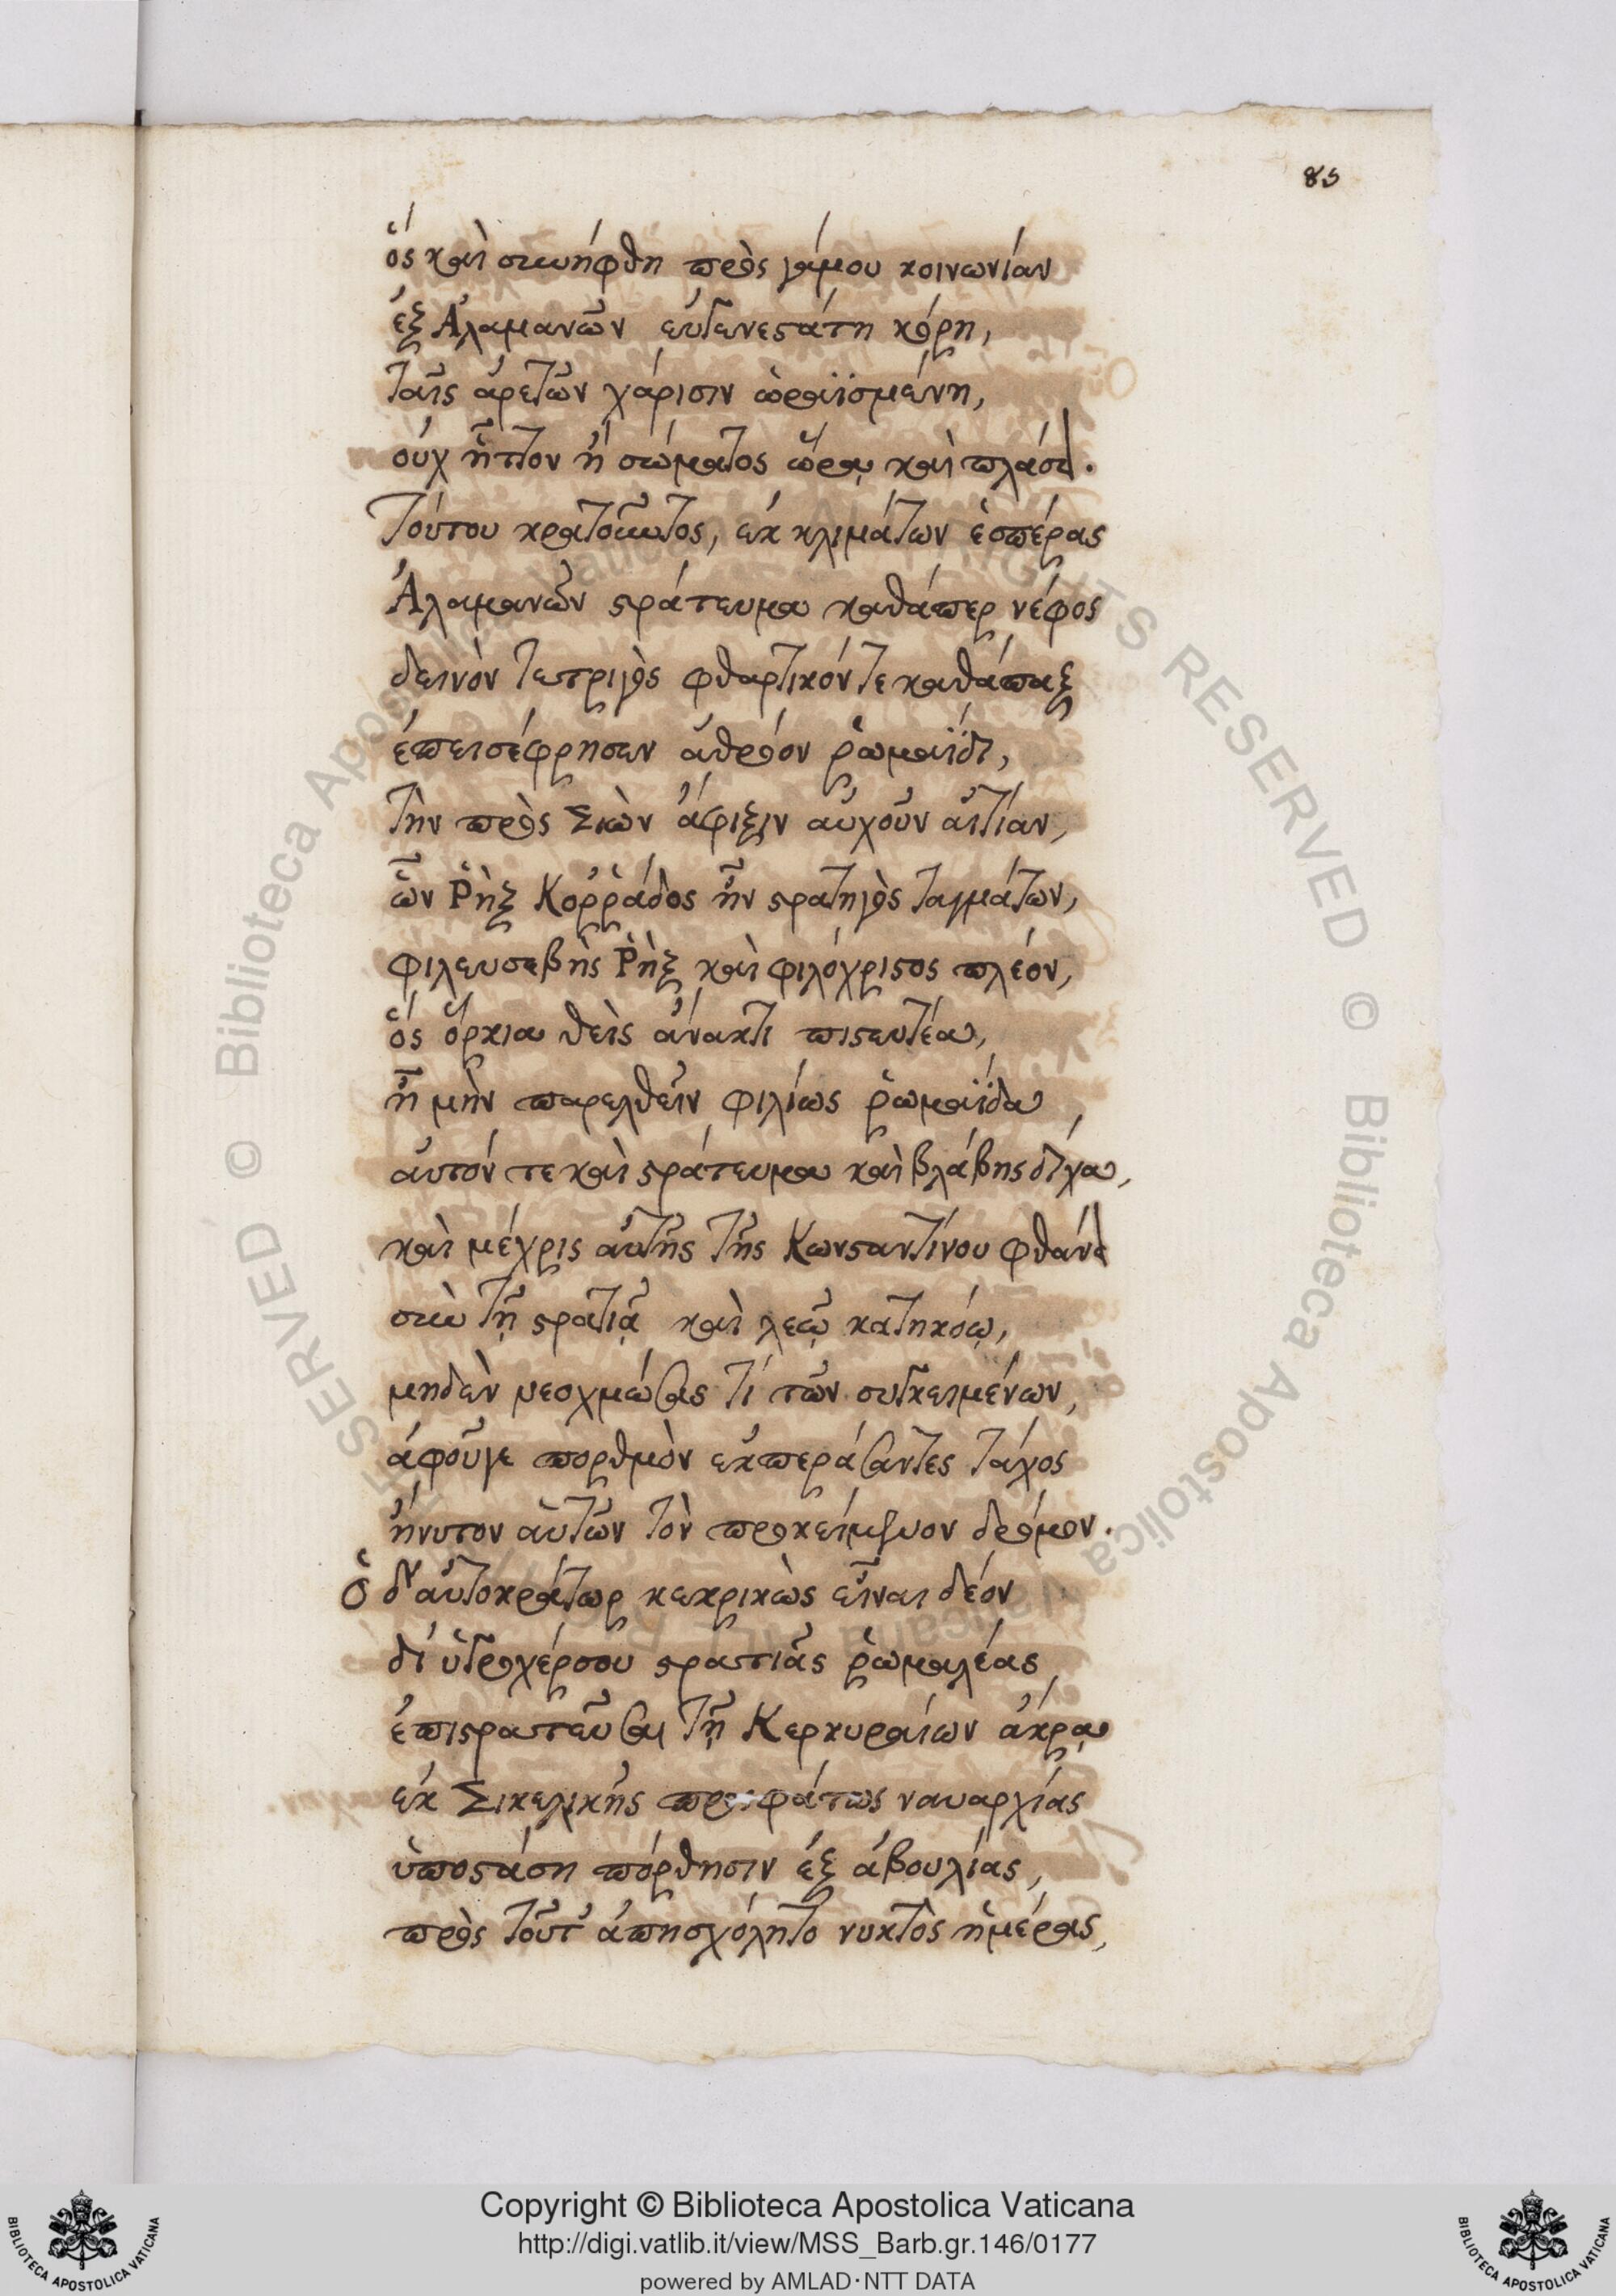 85
ὃς καὶ συνήφθη πρὸς γάμου κοινωνίαν
ἐξ Ἀλαμανῶν εὐγενεστάτη κόρη,
ταῖς ἀρετῶν χάρισιν ὡραϊσμένη,
οὐχ ἧττον ἢ σώματος ὥρᾳ καὶ πλάσει.
Τούτου κρατοῦντος, ἐκ κλιμάτων ἑσπέρας
Ἀλαμανῶν στράτευμα καθάπερ νέφος
δεινὸν τετριγὸς φθαρτικόν τε καθάπαξ
ἐπεισέφρησεν ἀθρόον ῥωμαΐδι,
τὴν πρὸς Σιὼν ἄφιξιν αὐχοῦν αἰτίαν,
ὧν Ῥὴξ Κοῤῥάδος ἦν στρατηγὸς ταγμάτων,
φιλευσεβὴς Ῥὴξ καὶ φιλόχριστος πλέον,
ὃς ὅρκια θεὶς ἄνακτι πιστευτέα,
ἦ μὴν παρελθεῖν φιλίως ῥωμαΐδα
αὐτόν τε καὶ στράτευμα καὶ βλάβης δίχα,
καὶ μέχρις αὐτῆς τῆς Κωνσταντίνου φθάνει
σὺν τῇ στρατιᾷ καὶ λεῷ κατηκόῳ,
μηδὲν νεοχμώσας τί τῶν συγκειμένων,
ἀφοῦγε πορθμὸν ἐκπεράσαντες τάχος
ἤνυτον αὐτῶν τὸν προκείμενον δρόμον.
Ὁ δ' αὐτοκράτωρ κεκρικὼς εἶναι δέον
δι' ὑγροχέρσου στρατιᾶς ῥωμαλέας
ἐπιστρατεῦσαι τῇ Κερκυραίων ἄκρᾳ
ἐκ Σικελικῆς προσφάτως ναυαρχίας
ὑποστάσῃ πόρθησιν ἐξ ἀβουλίας,
πρὸς τοῦτ' ἀπησχόλητο νυκτὸς ἡμέρας,
Copyright © Biblioteca Apostolica Vaticana
http://digi.vatlib.it/view/MSS_Barb.gr.146/0177
powered by AMLAD·NTT DATA